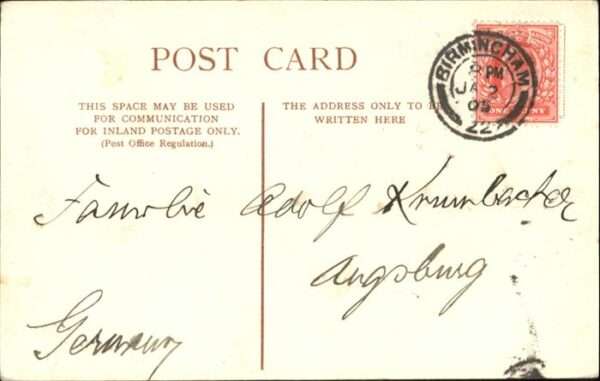 POST CARD
THIS SPACE MAY BE USED
FOR COMMUNICATION
FOR INLAND POSTAGE ONLY.
(Post Office Regulation.)
THE ADDRESS ONLY TO BE
WRITTEN HERE
BIRMINGHAM
8 PM
JA 2
05
22
Familie Adolf Krumbacher
Augsburg
Germany